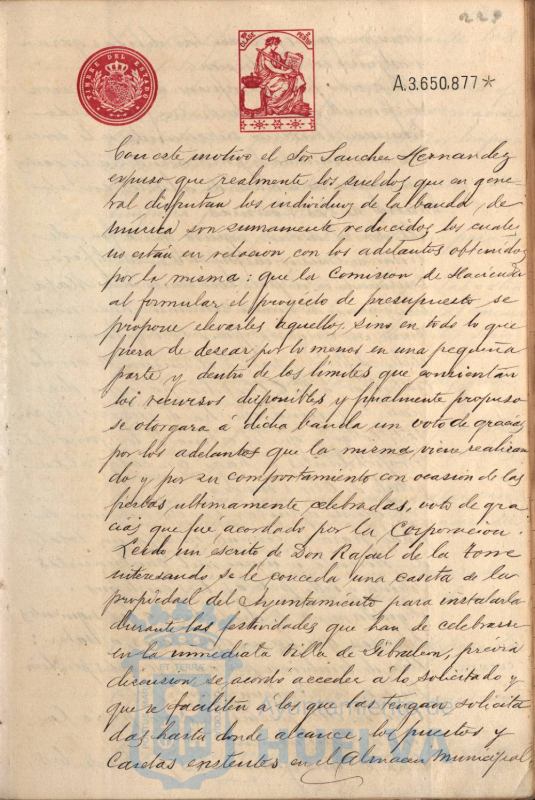 229
TIMBRE DEL ESTADO
CLASE
A.3.650.877*
Con este motivo el Sor Sanchez Hernandez
expuso que realmente los sueldos que en gene-
ral disfrutan los individuos de la banda de
música son sumamente reducidos los cuales
no estan en relacion con los adelantos obtenidos
por la misma: que la Comision de Hacienda
al formular el proyecto de presupuesto se
propone elevarles aquellos, sino en todo lo que
fuera de desear por lo menos en una pequeña
parte y dentro de los límites que consientan
los recursos disponibles y finalmente propuso
se otorgara á dicha banda un voto de gracias
por los adelantos que la misma viene realizan
do y por su comportamiento con ocasion de las
fiestas ultimamente celebradas, voto de gra
cias que fue acordado por la Corporacion.
Leido un escrito de Don Rafael de la Torre
interesando se le conceda una caseta de la
propiedad del Ayuntamiento para instalarla
durante las festividades que han de celebrarse
en la inmediata Villa de Gibraleon, prévia
discusion se acordó acceder á lo solicitado y
que se faciliten á los que las tengan solicita
das hasta donde alcance los puestos y
casetas existentes en el Almacen Municipal,
Ayuntamiento de
HUELVA